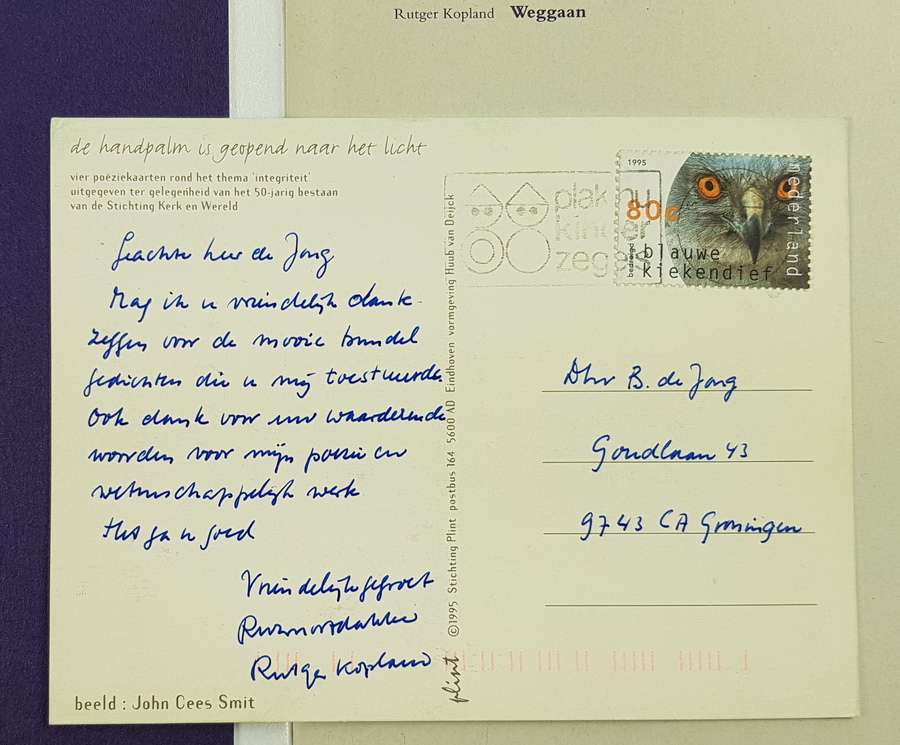 Rutger Kopland Weggaan
de handpalm is geopend naar het licht
vier poëziekaarten rond het thema 'integriteit'
uitgegeven ter gelegenheid van het 50-jarig bestaan
van de Stichting Kerk en Wereld
Geachte heer de Jong
Mag ik u vriendelijk dank
zeggen voor de mooie bundel
gedichten die u mij toestuurde.
Ook dank voor uw waarderende
woorden voor mijn poezie en
wetenschappelijk werk
Het ga u goed
Vriendelijke gegroet
Rutger Kopland
beeld : John Cees Smit
©1995 Stichting Plint postbus 164 5600 AD Eindhoven vormgeving Huub van Deijck
plint
plak nu
kinder
zegels
1995
80c
nederland
bedreigd
blauwe
kiekendief
Dhr B. de Jong
Goudlaan 43
9743 CA Groningen